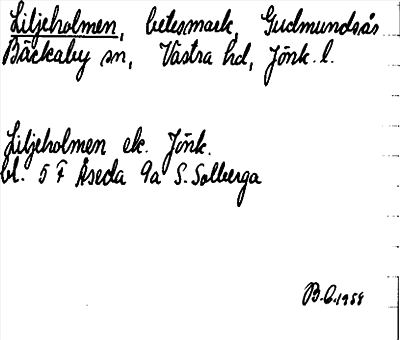 Liljeholmen, betesmark, Gudmundsås
Bäckaby sn, Västra hd, Jönk. l.
Liljeholmen ek. Jönk.
bl. 5 F Åseda 9a S. Solberga
B.C. 1958